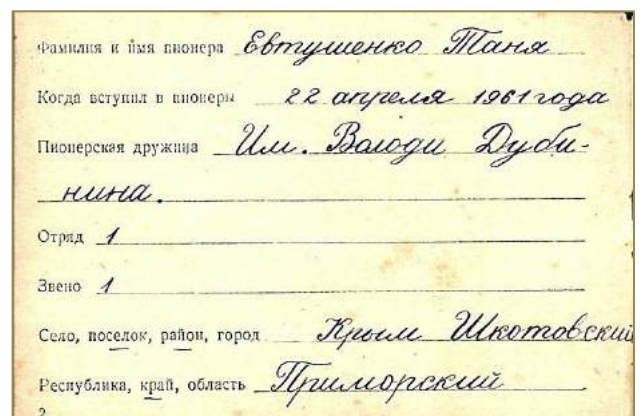 Фамилия и имя пионера Евтушенко Таня
Когда вступил в пионеры 22 апреля 1961 года
Пионерская дружина Им. Володи Дуби-
нина.
Отряд 1
Звено 1
Село, поселок, район, город Крым Шкотовский
Республика, край, область Приморский
2